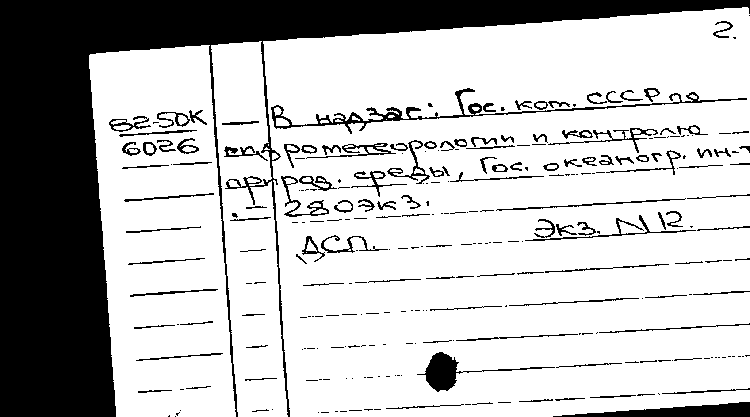 2.
82-50К — В надзаг: Гос. ком. СССР по
6026 гидрометеорологии и контролю
природ. среды, Гос. океаногр. ин-т
. — 280экз.
ДСП. Экз. N 12.